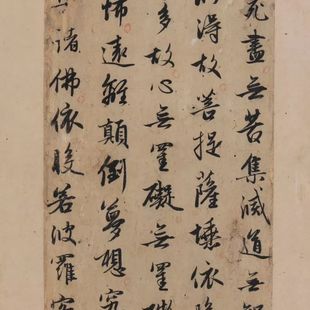 死盡無苦集滅道無智
所得故菩提薩埵依般
多故心無罣礙無罣礙
怖遠離顛倒夢想究
諸佛依般若波羅蜜